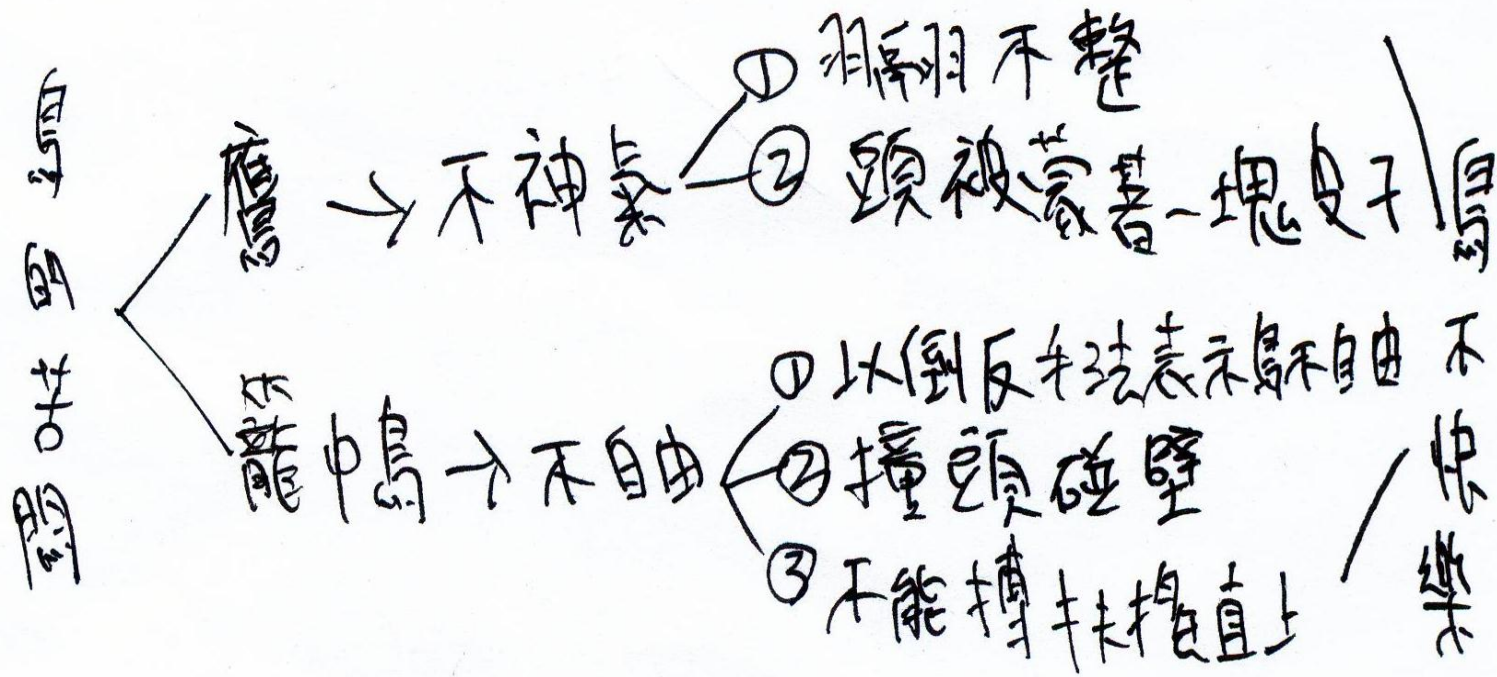 鳥的苦悶
鷹→不神氣
①羽翮不整
②頭被蒙著一塊皮子
籠中鳥→不自由
①以倒反手法表示鳥不自由
②撞頭碰壁
③不能摶扶搖直上
鳥不快樂